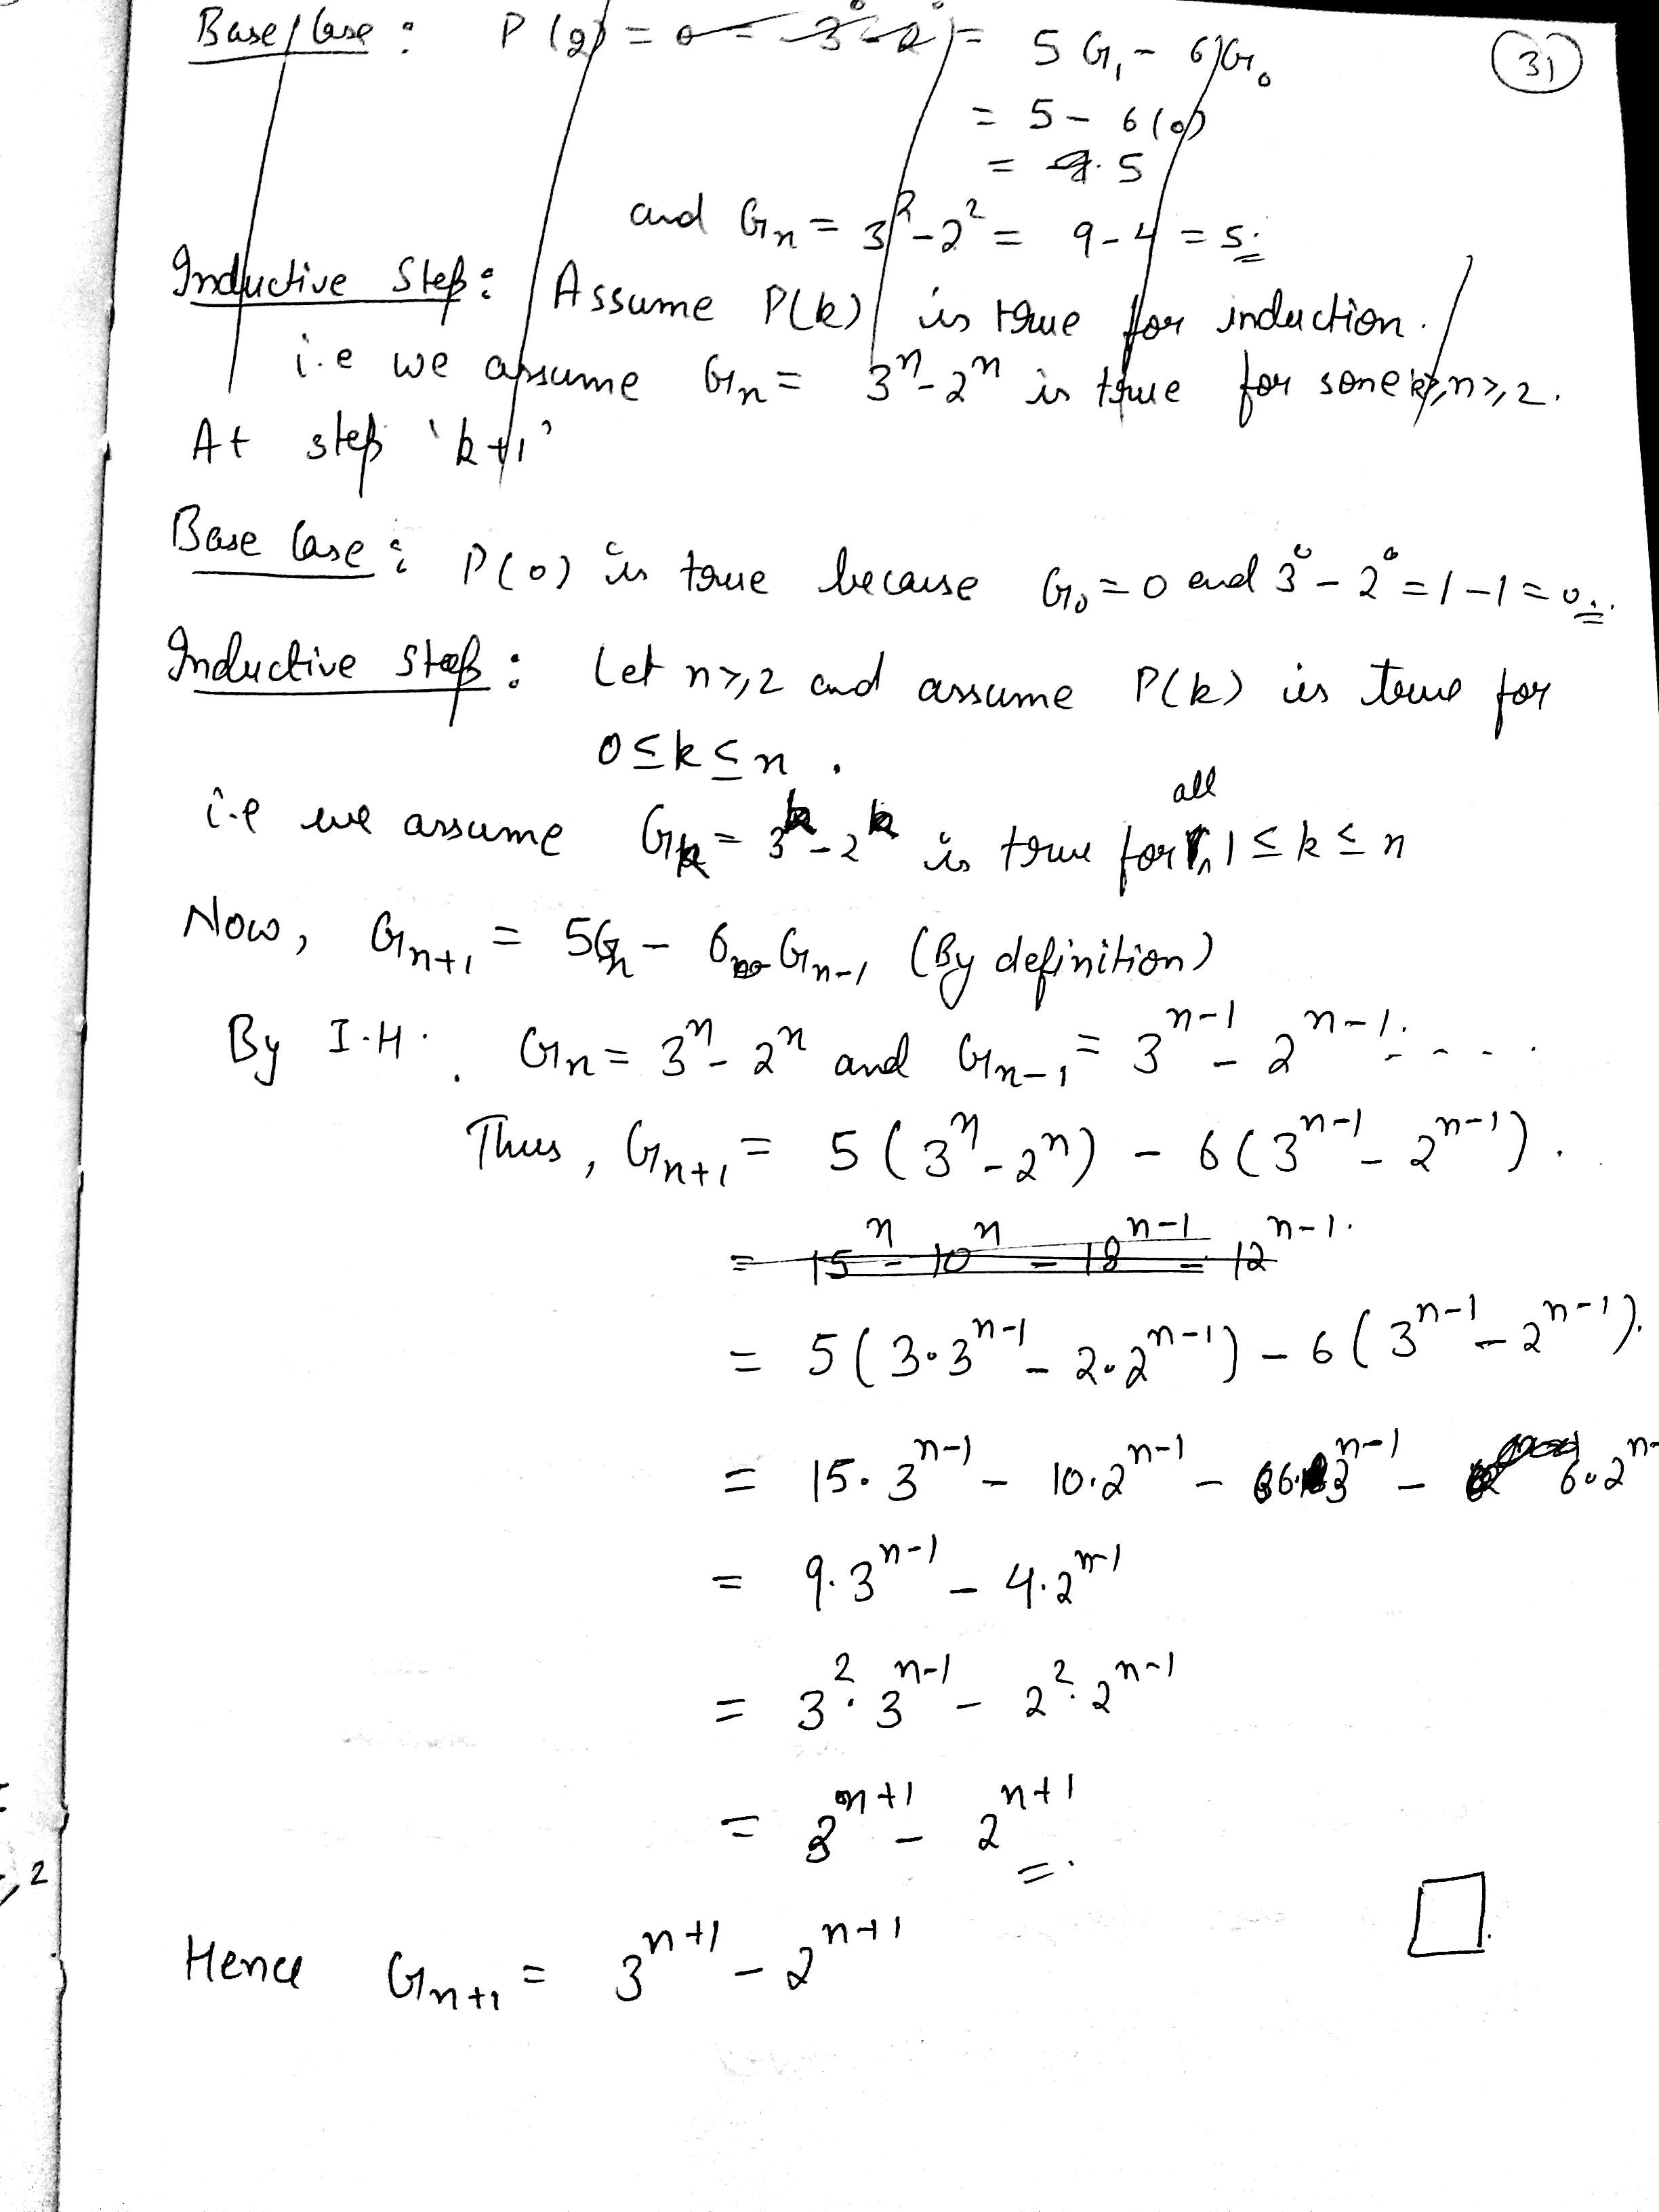 Base Case : P(2) = 0 = 3⁰-2⁰ = 5G₁ - 6G₀
31
= 5 - 6(0)
= 5
and Gn = 3² - 2² = 9 - 4 = 5.
Inductive Step : Assume P(k) is true for induction.
i.e we assume Gn = 3ⁿ - 2ⁿ is true for some n ≥ 2.
At step 'k+1'
Base Case : P(0) is true because G₀ = 0 and 3⁰ - 2⁰ = 1 - 1 = 0.
Inductive Step : Let n ≥ 2 and assume P(k) is true for
0 ≤ k ≤ n .
i.e we assume Gk = 3ᵏ - 2ᵏ is true for all 1 ≤ k ≤ n
Now, Gn+1 = 5Gn - 6 Gn-1 (By definition)
By I.H. Gn = 3ⁿ - 2ⁿ and Gn-1 = 3ⁿ⁻¹ - 2ⁿ⁻¹. - - - .
Thus, Gn+1 = 5(3ⁿ - 2ⁿ) - 6(3ⁿ⁻¹ - 2ⁿ⁻¹).
= 15ⁿ - 10ⁿ - 18ⁿ⁻¹ - 12ⁿ⁻¹.
= 5(3·3ⁿ⁻¹ - 2·2ⁿ⁻¹) - 6(3ⁿ⁻¹ - 2ⁿ⁻¹).
= 15·3ⁿ⁻¹ - 10·2ⁿ⁻¹ - 6·3ⁿ⁻¹ - 6·2ⁿ⁻
= 9·3ⁿ⁻¹ - 4·2ⁿ⁻¹
= 3²·3ⁿ⁻¹ - 2²·2ⁿ⁻¹
= 3ⁿ⁺¹ - 2ⁿ⁺¹
, 2
Hence Gn+1 = 3ⁿ⁺¹ - 2ⁿ⁺¹